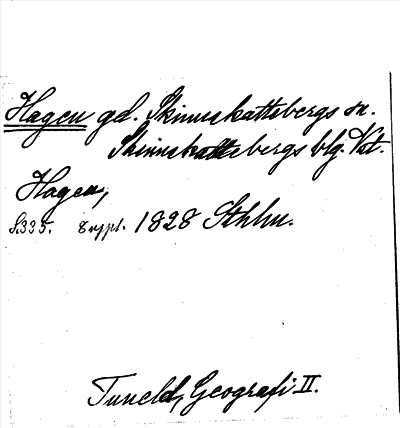 Hagen gd. Skinnskattebergs sn.
Skinnskattebergs blg. Vstm.
Hagen,
S.335. 8 uppl. 1828 Sthlm.
Tuneld, Geografi II.